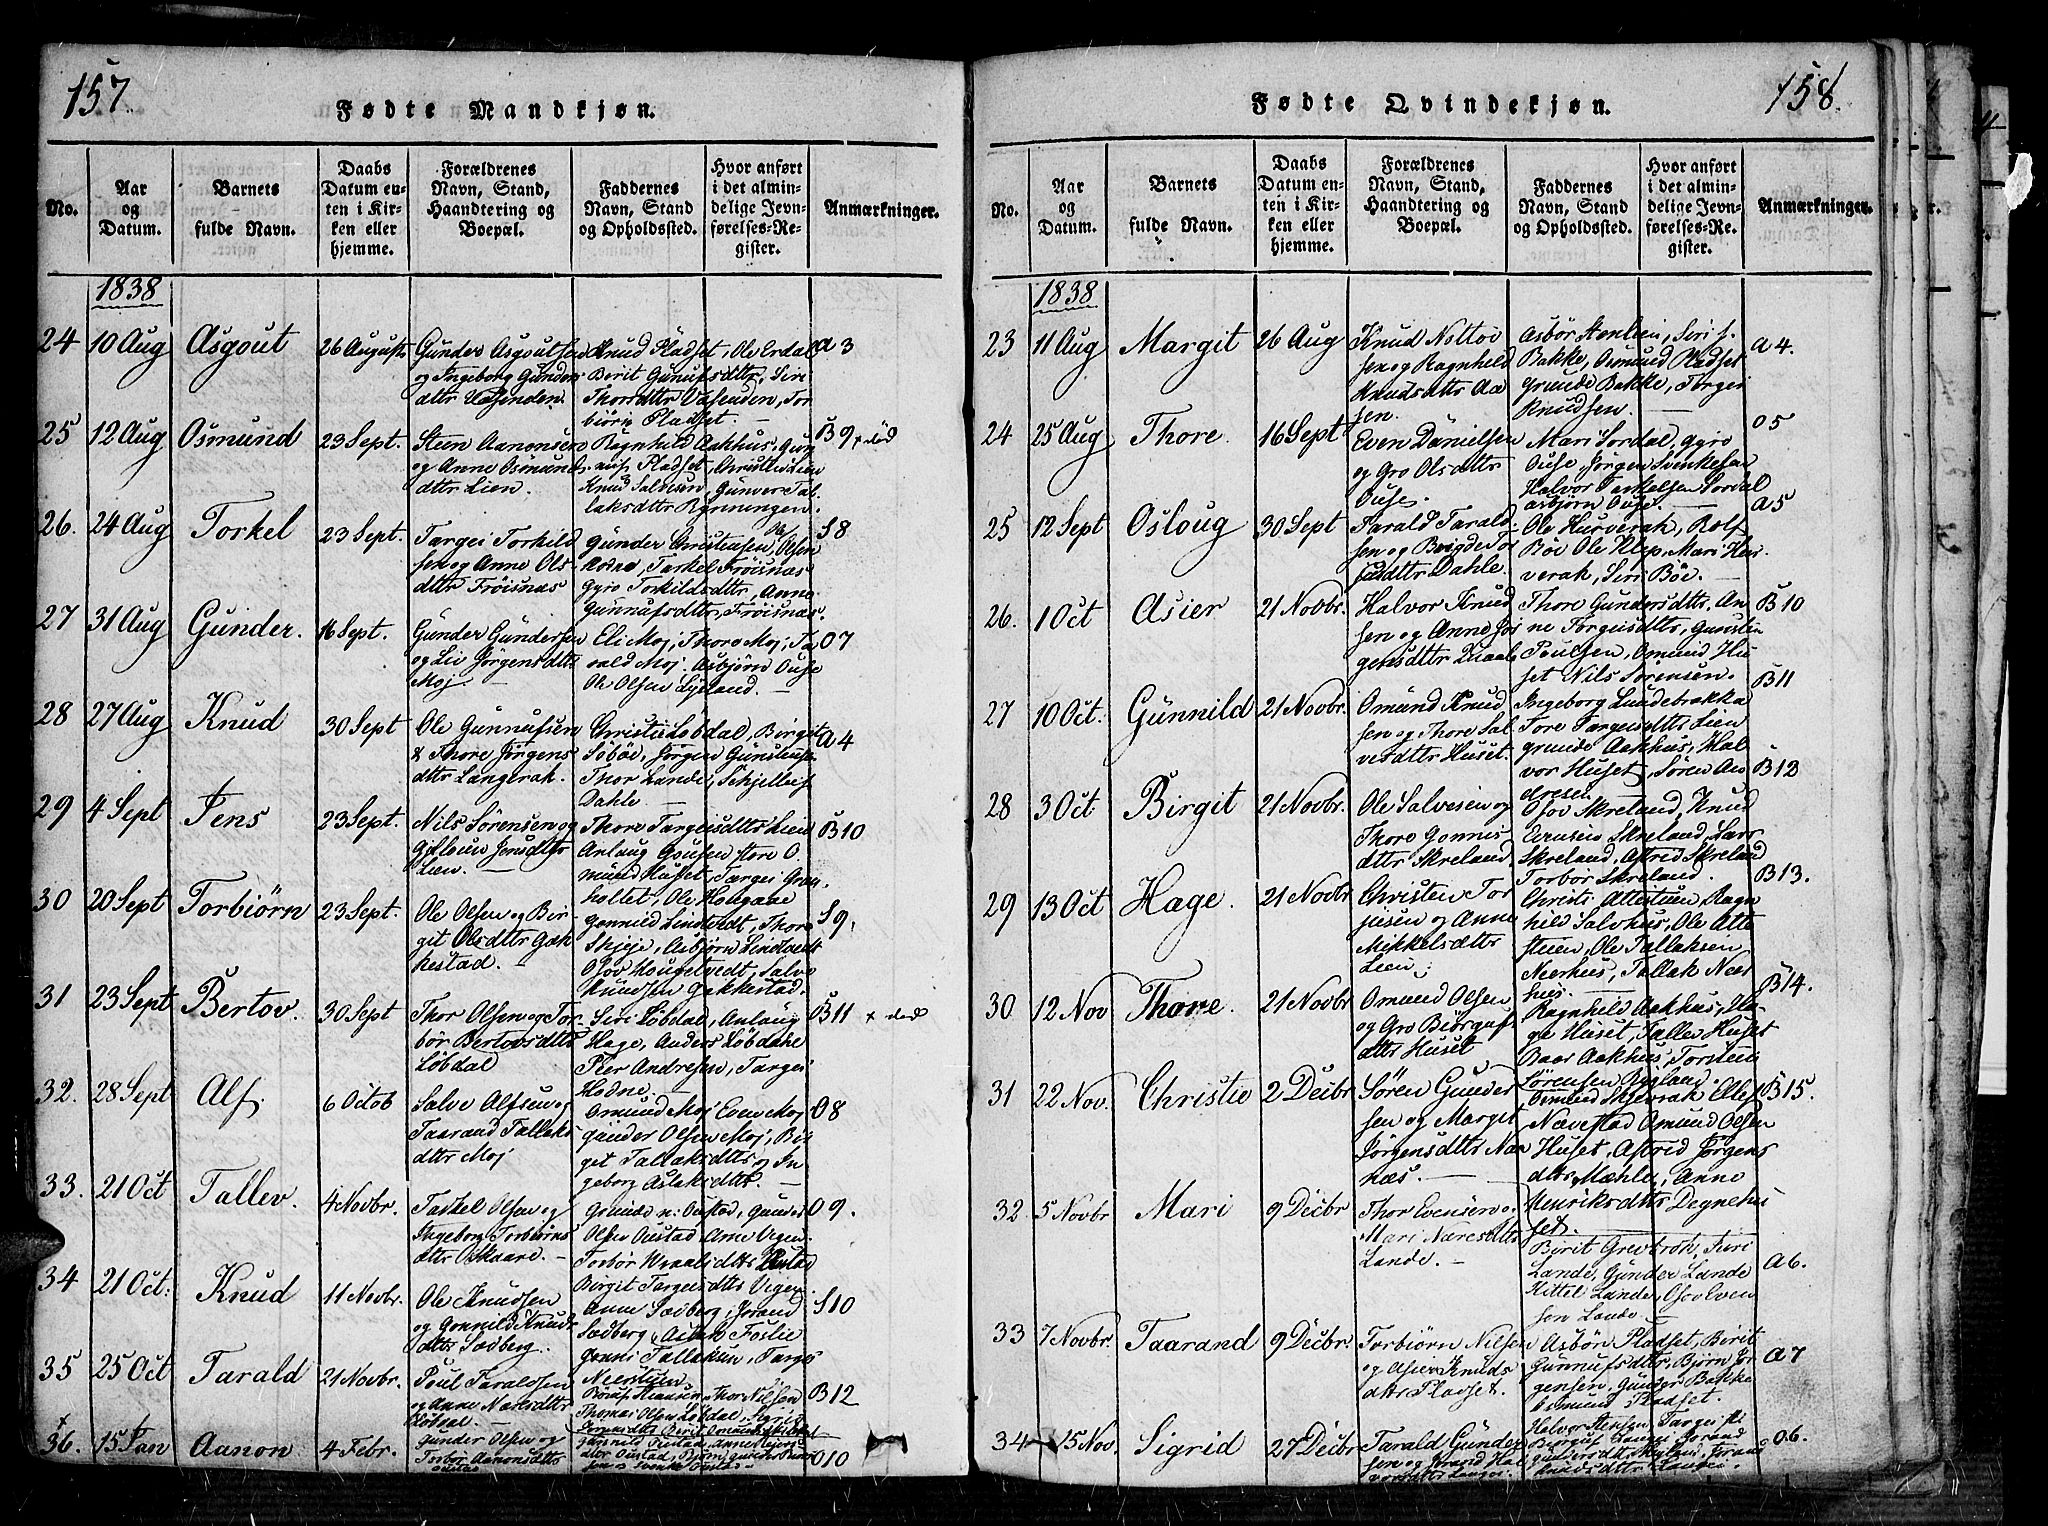 157
Fødte Mandkjøn.
No.
Aar
og
Datum.
Barnets
fulde Navn.
Daabs
Datum en-
ten i Kir-
ken eller
hjemme.
Forældrenes
Navn, Stand,
Haandtering og
Boepæl.
Faddernes
Navn, Stand
og Opholdssted.
Hvor anført
i det almin-
delige Jevn-
førelses-Re-
gister.
Anmærkninger.
1838
24
10 Aug
Asgout
26 Augusts
Gunder Asgoutsen
og Ingeborg Gunders
dttr
Knud Pladset, Ole Erdal
Berit Gunufsdttr, Siri
Thorsdttr Vasenden, Tor
biörn Pladset. —
A 3
25
12 Aug
Osmund
23 Sept.
Steen Aanonsen
og Anne Osmunds
dttr Lien.
Ragnhild Aakhus, Gun
nuf Pladset, Christi Lien
Knud Salvesen, Gunver Tal
laksdttr
B 9
+ död
26.
24 Aug
Torkel
23 Sept.
Targei Torkild
sen og Anne Ols
dttr Fröisnæs
Gunder Christensen, Ole Olsen
Hodne, Tarkel Fröisnæs
Gyro Torkildsdttr, Anne
Gunnufsdttr, Fröisnæs.
S 8
27
31 Aug
Gunder.
16 Sept.
Gunder Gundersen
og Liv Jörgensdttr
Moj. —
Eli Moj, Thore Moj, Ta
rald Moj, Asbjörn Ouse
Ole Olsen Ljosland. —
O 7
28
27 Aug
Knud
30 Sept
Ole Gunnufsen
& Thore Jörgens
dttr Langerak.
Christi Löbdal, Birgit
Löböe, Jörgen Gunsteinsen
Thor Lande, Schjelleif
Dahle. —
A 4
29
4 Sept
Jens
23 Sept.
Nils Sörensen og
Jensdttr
Lien. —
Thore Targeisdttr Lien
Anlaug
mund Huset, Targei Gron
hollet, Ole
B 10
30
20 Sept
Torbiörn
23 Sept.
Ole Olsen og Bir
git Olsdttr Gak
kestad. —
Gonnild Lindtvedt, Thore
Skjeje, Asbjörn Lindtvedt
Osov Hougetvedt, Salve
Knudsen Gakkestad.
S 9.
31
23 Sept
Bertov.
30 Sept
Thor Olsen og Tor
bör Bertovsdttr
Löbdal
Siri Löbdal, Anlaug
Hage, Anders Löbdahl
Peer Andresen, Targei
Hodne
B 11
+ död
32.
28 Sept
Alf
6 Octob
Salve Alfsen og
Taarand Tallaks
dttr Moj
Osmund Moj Even Moj
Gunder Olsen Moj, Bir
git Tallaksdttr og In
geborg Aslaksdttr. —
O 8
33.
21 Oct
Tallev.
4 Novbr.
Tarkel Olsen og
Ingeborg Torbiörns
dttr Oskaare. —
Gunder
Olsen Oustad, Arne Vigen
Torbör
Birgit Targeisdttr Vigen.
O 9.
34
21 Oct:
Knud
11 Novbr.
Ole Knudsen
og Gonnild Knuds
dttr Sædberg.
Anne Sædberg, Jorand
Sædberg, Foslie
Tallaksen, Targei
S 10
35
25 Oct
Tarald
21 Novbr.
Poul Taraldsen
og Anne Næresdttr
Löbdal —
Thor Nilsen
Thomas Olsen Löbdal,
B 12
+
36.
15 Jan
Aanon
4 Febr.
Gunder Olsen og
Torbor Aanonsdttr
Oustad
O 10
158
Fødte Qvindekjøn.
No.
Aar
og
Datum.
Barnets
fulde Navn.
Daabs
Datum en-
ten i Kir-
ken eller
hjemme.
Forældrenes
Navn, Stand,
Haandtering og
Boepæl.
Faddernes
Navn, Stand
og Opholdssted.
Hvor anført
i det almin-
delige Jevn-
førelses-Re-
gister.
Anmærkninger.
1838
23
11 Aug
Margit
26 Aug
Knud Nottov
sen og Ragnhild
Knudsdttr Aa
sen.
Asbör Stenlien, Siri
Bakke, Osmund Pladset
Grunde Bakke, Torgier
Knudsen. —
A 4.
24
25 Aug
Thore.
16 Sept
Even Danielsen
og Gro Olsdttr
Ouse.
Mari Sordal, Gyro
Ouse, Jörgen Svenkesen
Halvor Tarkelsen Sordal
Asbjörn Ouse. —
O 5
25
12 Sept
Osloug
30 Sept
Tarald Tarald
sen og Brigde
dttr Dahle
Ole Huverak, Rolf
Böe Ole Klep, Mari Hu
verak, Siri Böe. —
A 5
26.
1 Oct
Asier
21 Novbr.
Halvor Knud
sen og Anne Jör
gensdttr
Thore Gundersdttr, An
ne Torgeisdttr, Gunstein
Poulsen, Osmund Hu
set Nils Sörensen.
B 10
27
10 Oct.
Gunnild
21 Novbr.
Omund Knud
sen og Thore Sal
vesdttr Huset.
Ingeborg Lundebrakka
Tore Targeisdttr Lien
Grunde Aakhus, Hal
vor Huset, Sören An
dresen
B 11
28
3 Oct:
Birgit
21 Novbr.
Ole Salvesen og
Thore Gonnis
dttr Skreland
Osov Skreland, Knud
Evensen Skreland, Lars
Skreland, Astrid Skreland
Torbör Skreland.
B 12
29
13 Oct
Hage.
21 Novbr
Christen Tor
jusen og Anne
Mikkelsdttr
Lien.
Christi Attesteen, Ragn
hild Salvhus, Ole Atte
steen, Ole Tallaksen
Neerhus, Tallak Neer
huus. —
B 13.
30
12 Nov
Thore.
21 Novbr
Omund Olsen
og Gro Biörgufs
dttr Huset
Ragnhild Aakhus, Ha
ge Huset, Tallev Huset
Baar Aakhus, Torsten
Sörensen Rygland.
B 14.
31
22 Nov.
Christie
2 Decbr
Sören Gunder
sen og Margit
Jörgensdttr Næs
næs. —
Næverstad Omund Olsen
Huset, Astrid Jörgens
dttr Mæhle, Anne
Henriksdttr Degnehu
set.
B 15.
32
5 Novbr
Mari
9 Decbr
Thor Evensen og
Mari Næresdttr
Lande.
Birit Grevtroh, Juri
Lande, Gunder Lande
Kittel Lande, Osov Even
sen Lande.
A 6.
33
7 Novbr.
Taarand
9 Decbr.
Torbiörn Nilsen
og Asier Knuds
dttr Pladset.
Asbör Pladset, Birit
Gunnufsdttr, Björn Jör
gensen, Gunder Bakke
Osmund Pladset.
A 7
34
15 Nov
Sigrid
27 Decbr
Tarald Gunder
sen og Jorand Hal
vorsdttr
O 6.